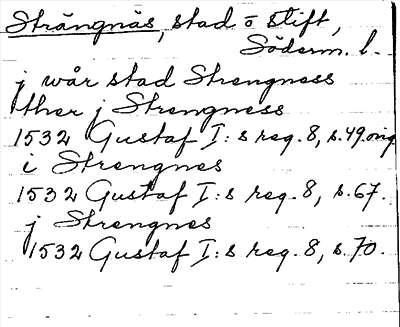 Strängnäs, stad o stift,
Söderm. l.
j wår stad Strengness
ther j Strengness
1532 Gustaf I:s reg. 8, s. 49 orig.
i Strengnes
1532 Gustaf I:s reg. 8, s. 67.
j Strengnes
1532 Gustaf I:s reg. 8, s. 70.